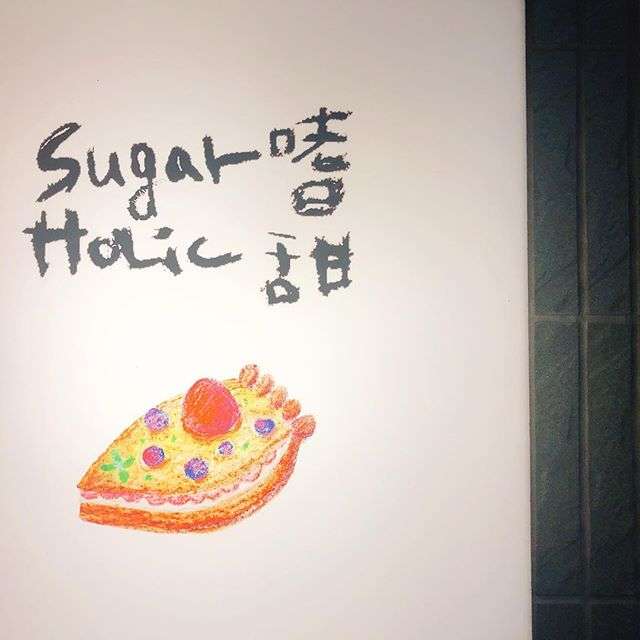 Sugar
Holic
嗜
甜